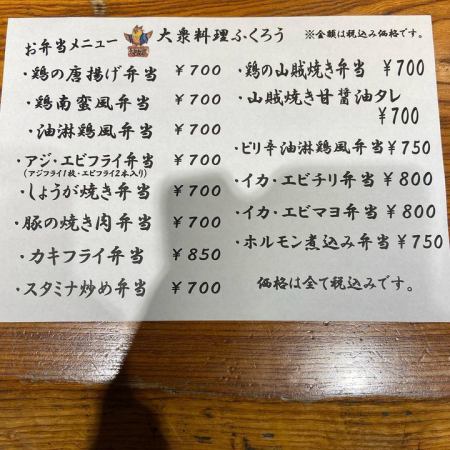 お弁当メニュー 大衆料理ふくろう ※金額は税込み価格です。
・鶏の唐揚げ弁当 ￥700
・鶏南蛮風弁当 ￥700
・油淋鶏風弁当 ￥700
・アジ・エビフライ弁当 ￥700
(アジフライ1枚・エビフライ2本入り)
・しょうが焼き弁当 ￥700
・豚の焼き肉弁当 ￥700
・カキフライ弁当 ￥850
・スタミナ炒め弁当 ￥700
・鶏の山賊焼き弁当 ￥700
・山賊焼き甘醤油タレ
￥700
・ピリ辛油淋鶏風弁当 ￥750
・イカ・エビチリ弁当 ￥800
・イカ・エビマヨ弁当 ￥800
・ホルモン煮込み弁当 ￥750
価格は全て税込みです。